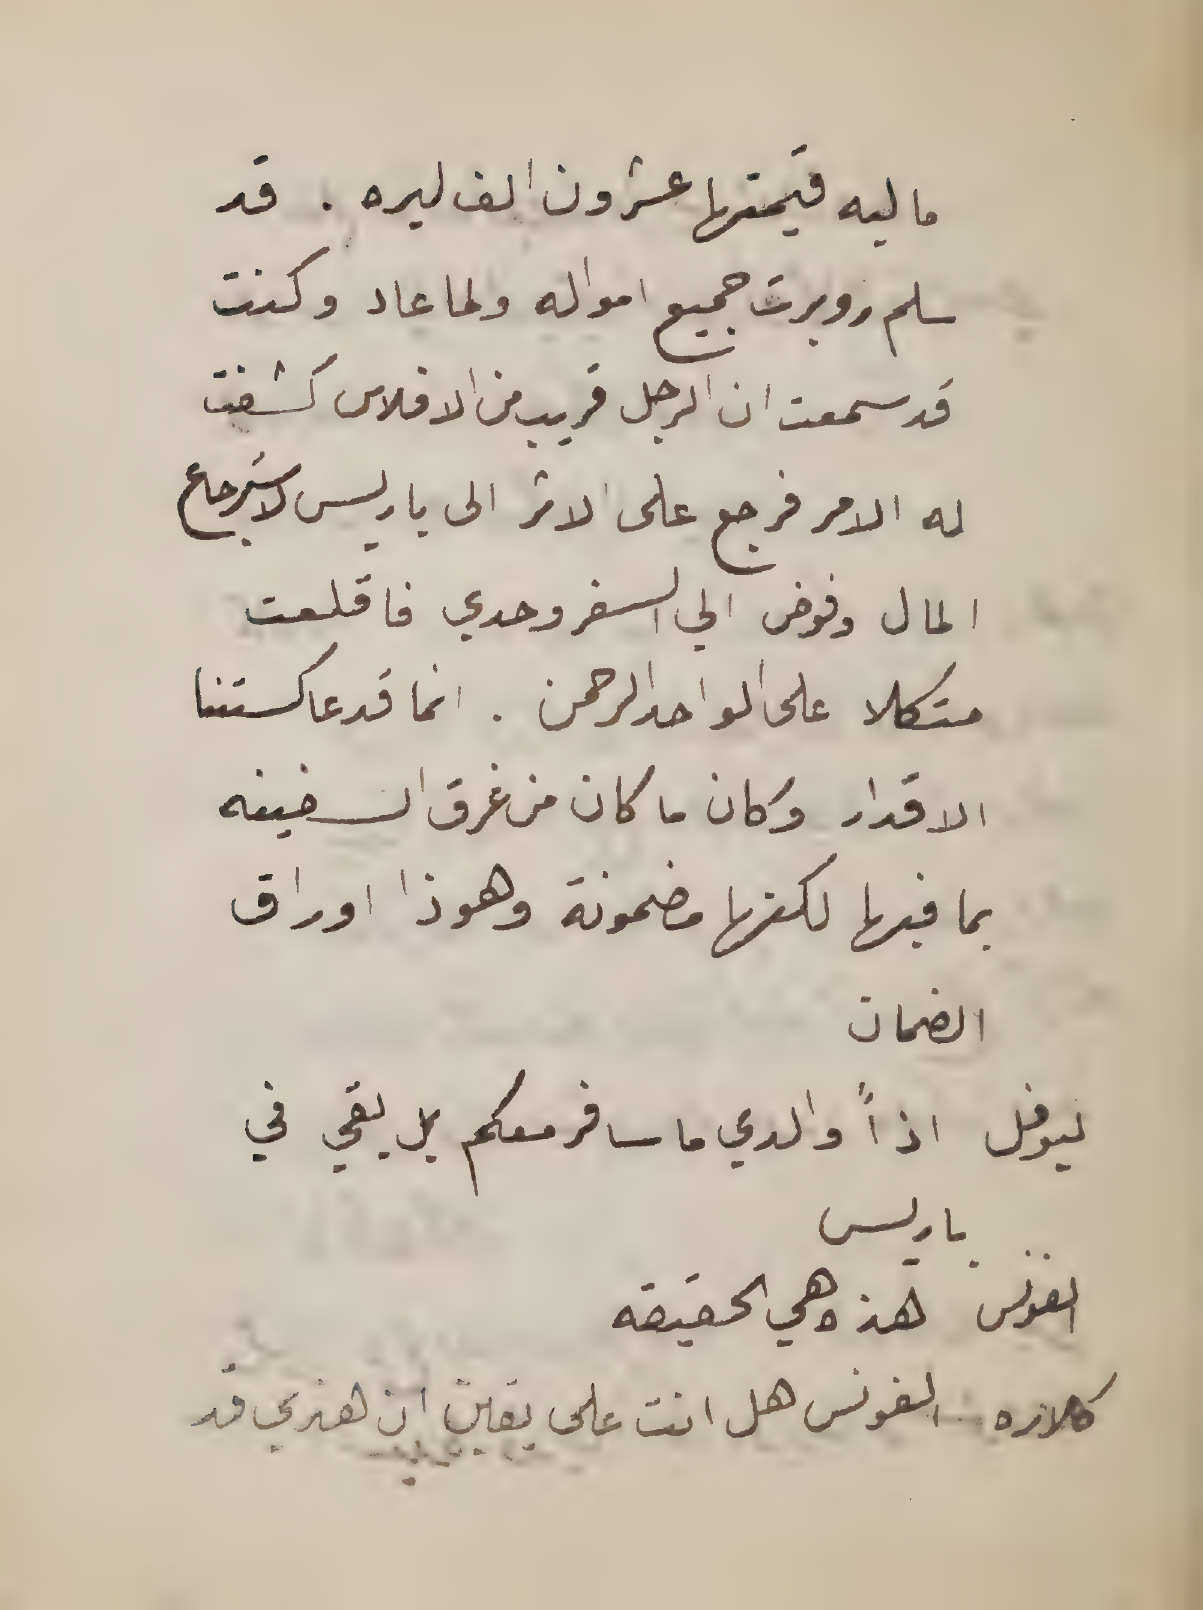 ماليه قيمتها عشرون الف ليره . قد
سلم روبرت جميع امواله ولما عاد وكنت
قد سمعت ان الرجل قريب من الافلاس كشفت
له الامر فرجع على الاثر الى باريس لاسترجاع
المال وفوض الي السفر وحدي فاقلعت
متكلا على الواحد الرحمن . انما قد عاكستنا
الاقدار وكان ما كان من غرق السفينه
بما فيها لكنها مضمونة وهوذا اوراق
الضمان
ليوفل اذاً والدي ما سافر معكم بل بقي في
باريس
الفونس هذه هي الحقيقه
كلاره الفونس هل انت على يقين ان هنري قد